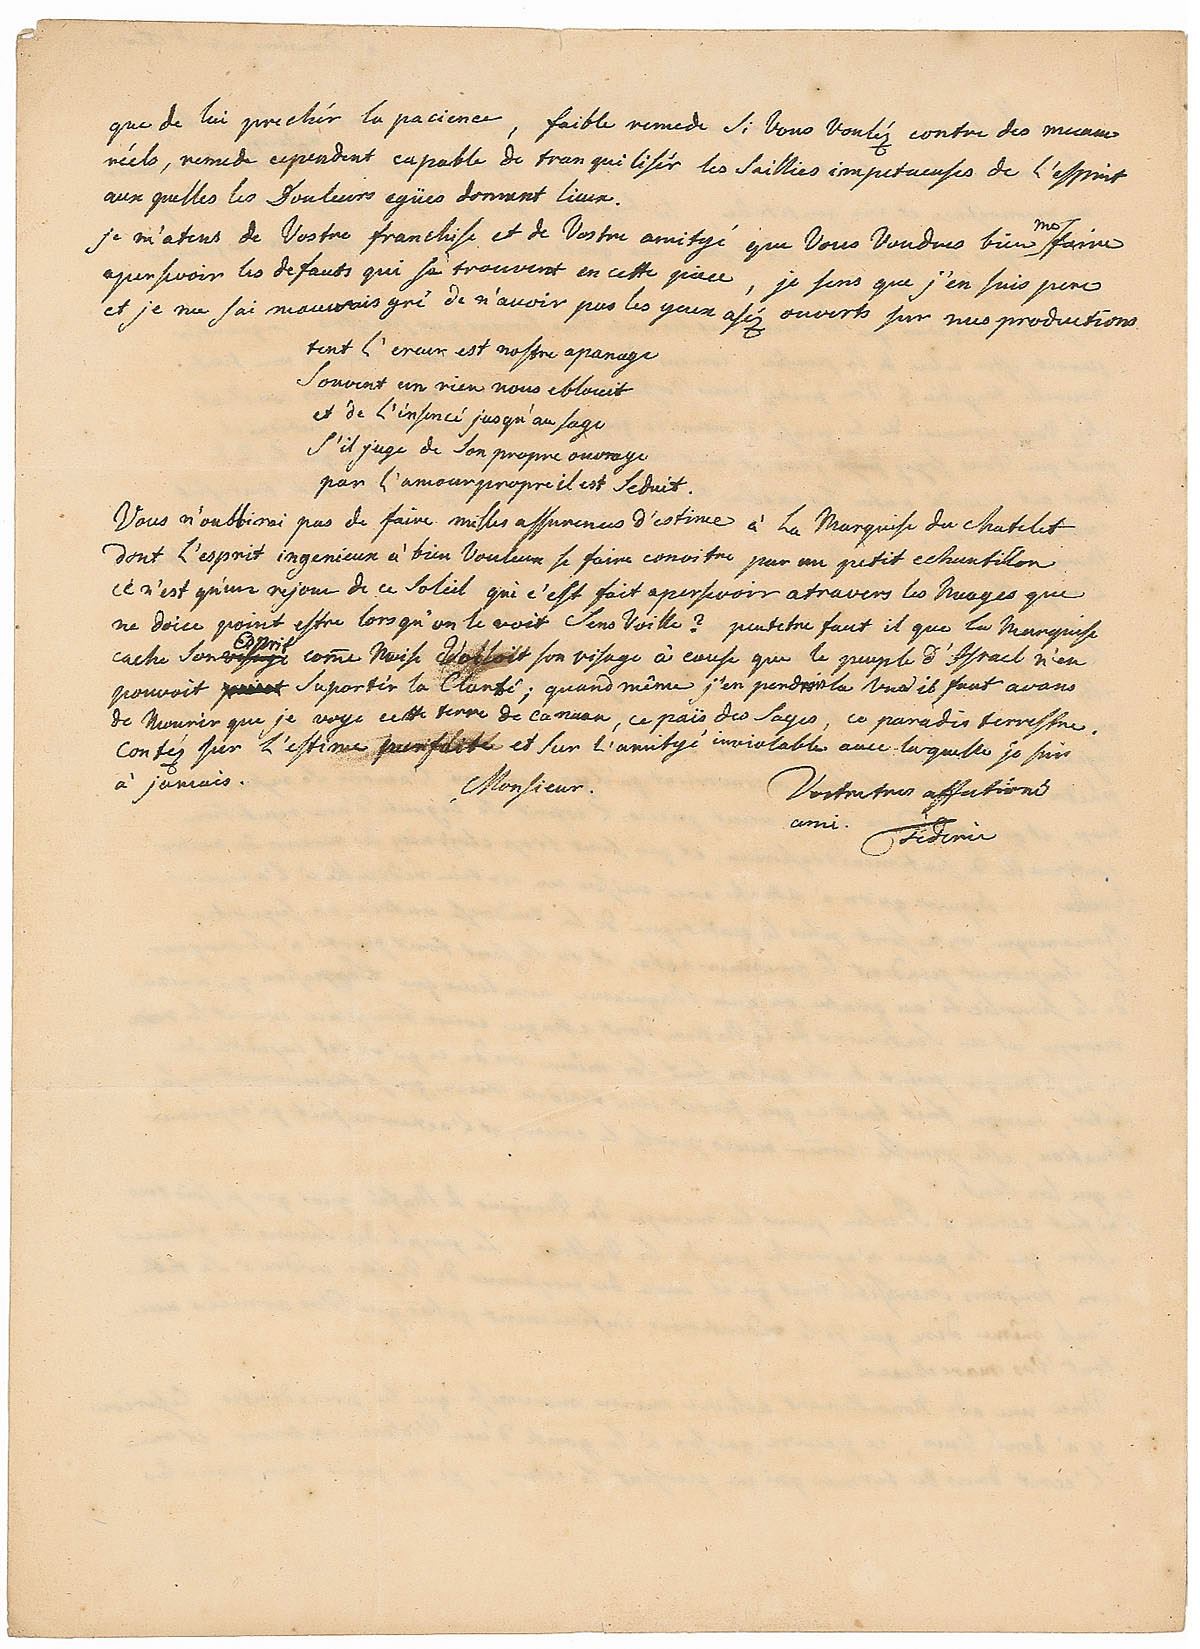 que de lui prechér la pacience, faible remede si Vous Vouléz contre des meaux
réels, remede cependent capable de tranquilisér les Saillies impetueuses de l'esprit
aux quelles les Douleurs egües donnent lieux.
je m'atens de Vostre franchise et de Vostre amityé que Vous Voudres bien me faire
apersevoir les defauts qui se trouvent en cette piece, je sens que j'en suis pere
et je me sai mauvais gré de n'avoir pas les yeux aséz ouverts sur mes productions
tent l'ereur est nostre apanage
Souvent un rien nous eblouit
et de l'insencé jusqu'au sage
S'il juge de Son propre ouvrage
par l'amour propre il est Seduit.
Vous n'oubbirai pas de faire milles assurences d'estime à La Marquise du Chatelet
dont l'esprit ingenieux à bien Vouleux se faire conoitre par un petit echantillon
ce n'est qu'un rejon de ce Soleil qui c'est fait apersevoir atravers les Nuages que
ne doice point estre lorsqu'on le voit Sens Voille? peutetre faut il que La Marquise
cache Son visage Esprit come Moise Volloit son visage à cause que le peuple d'Israel n'en
pouvoit Suportér la Clarté; quand même j'en perdrois la Vuë il faut avans
de Mourir que je voye cette terre de canaan, ce païs des Sages, ce paradis terrestre.
Contéz sur L'estime parfaite et sur l'amityé inviolable avec laquelle je suis
à jamais. Monsieur. Vostre tres affectioné
ami. Féderic